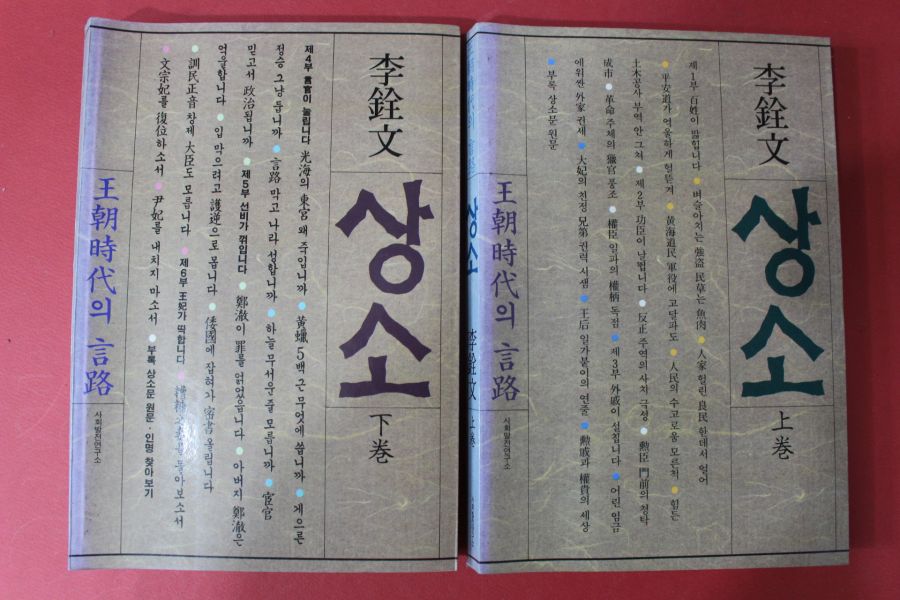 李銓文
상소
下巻
제4부 言官이 눌립니다 光海의 東宮 왜 죽입니까 • 黃蠟 5백 근 무엇에 씁니까 • 게으른
정승 그냥 둡니까 • 言路 막고 나라 성합니까 • 하늘 무서운줄 모릅니까 • 宦官
믿고서 政治됩니까 • 제5부 선비가 꺾입니다 • 鄭澈이 罪를 얽었습니다 • 아버지 鄭澈은
억울합니다 • 입 막으려고 護逆으로 몹니다 • 倭國에 잡혀가 密書 올립니다
• 訓民正音 창제 大臣도 모릅니다 • 제6부 王妃가 딱합니다 • 돌아보소서
• 文宗妃를 復位하소서 • 尹妃를 내치지 마소서 • 부록 상소문 원문·인명 찾아보기
王朝時代의 言路
사회발전연구소
李銓文
상소
上巻
제1부 百姓이 밟힙니다 • 벼슬아치는 強盜 民草는 魚肉 • 人家 헐린 良民 한데서 얼어
• 平安道가 억울하게 헐뜯겨 • 黃海道民 軍役에 고달파도 • 人民의 수고로움 모른척 • 힘든
土木공사 부역 안 그쳐 • 제2부 功臣이 날뜁니다 • 反正 주역의 사치 극성 • 勲臣 門前의 청탁
成市 • 革命 주체의 獵官 풍조 • 權臣 일파의 權柄 독점 • 제3부 外戚이 설칩니다 • 어린 임금
에워싼 外家 권세 • 大妃의 친정 兄弟 권력 시샘 • 王后 일가붙이의 연줄 • 勲戚과 權貴의 세상
• 부록 상소문 원문
王朝時代의 言路
사회발전연구소
상소
李銓文
上巻